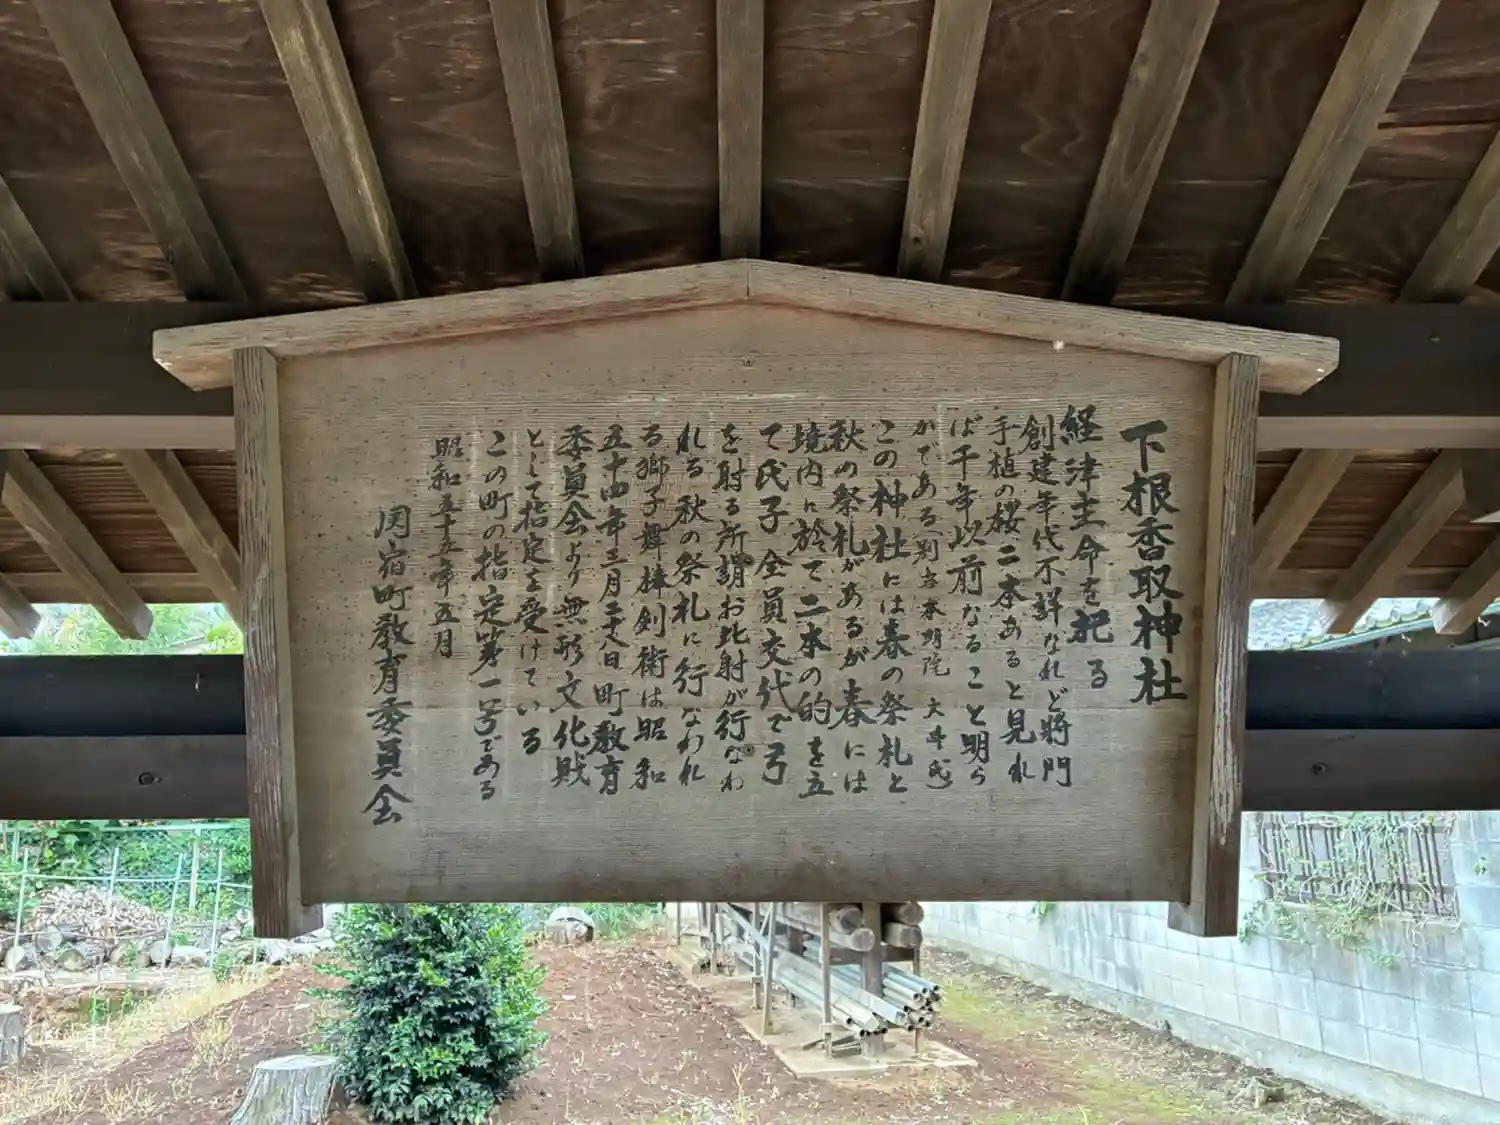 下根香取神社
経津主命を祀る
創建年代不詳なれど将門
手植の桜二本あると見れ
ば千年以前なること明ら
かである(別当本明院 大井氏)
この神社には春の祭礼と
秋の祭礼があるが春には
境内に於て二本の的を立
て氏子全員交代で弓
を射る所謂お比射が行なわ
れる秋の祭礼に行なわれ
る獅子舞棒剣術は昭和
五十四年三月二十八日町教育
委員会より無形文化財
として指定を受けている
この町の指定第一号である
昭和五十五年五月
関宿町教育委員会